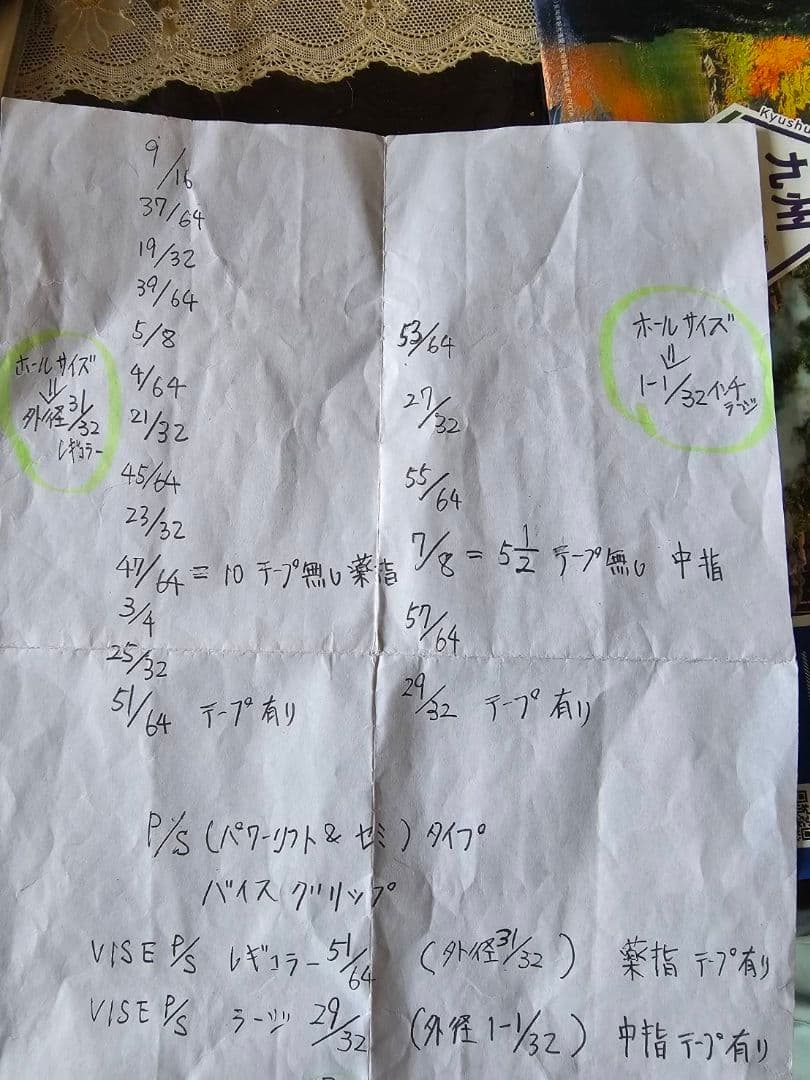 9/16
37/64
19/32
39/64
5/8
4/64
21/32
45/64
23/32
47/64 = 10 テープ無し 薬指
3/4
25/32
51/64 テープ有り
ホールサイズ
⇓
外径31/32
レギュラー
53/64
27/32
55/64
7/8 = 5 1/2 テープ無し 中指
57/64
29/32 テープ有り
ホールサイズ
⇓
1-1/32インチ
ラージ
P/S (パワーリフト&セミ) タイプ
バイスグリップ
VISE P/S レギュラー 51/64 (外径31/32) 薬指 テープ有り
VISE P/S ラージ 29/32 (外径 1-1/32) 中指 テープ有り
Kyushu
九州